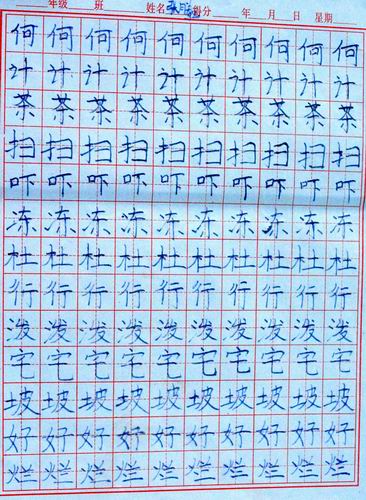 年级 班 姓名 得分 年 月 日 星期
何何何何何何何何何何
汁汁汁汁汁汁汁汁汁汁
茶茶茶茶茶茶茶茶茶茶
扫扫扫扫扫扫扫扫扫扫
吓吓吓吓吓吓吓吓吓吓
冻冻冻冻冻冻冻冻冻冻
杜杜杜杜杜杜杜杜杜杜
行行行行行行行行行行
泼泼泼泼泼泼泼泼泼泼
宅宅宅宅宅宅宅宅宅宅
坡坡坡坡坡坡坡坡坡坡
好好好好好好好好好好
烂烂烂烂烂烂烂烂烂烂